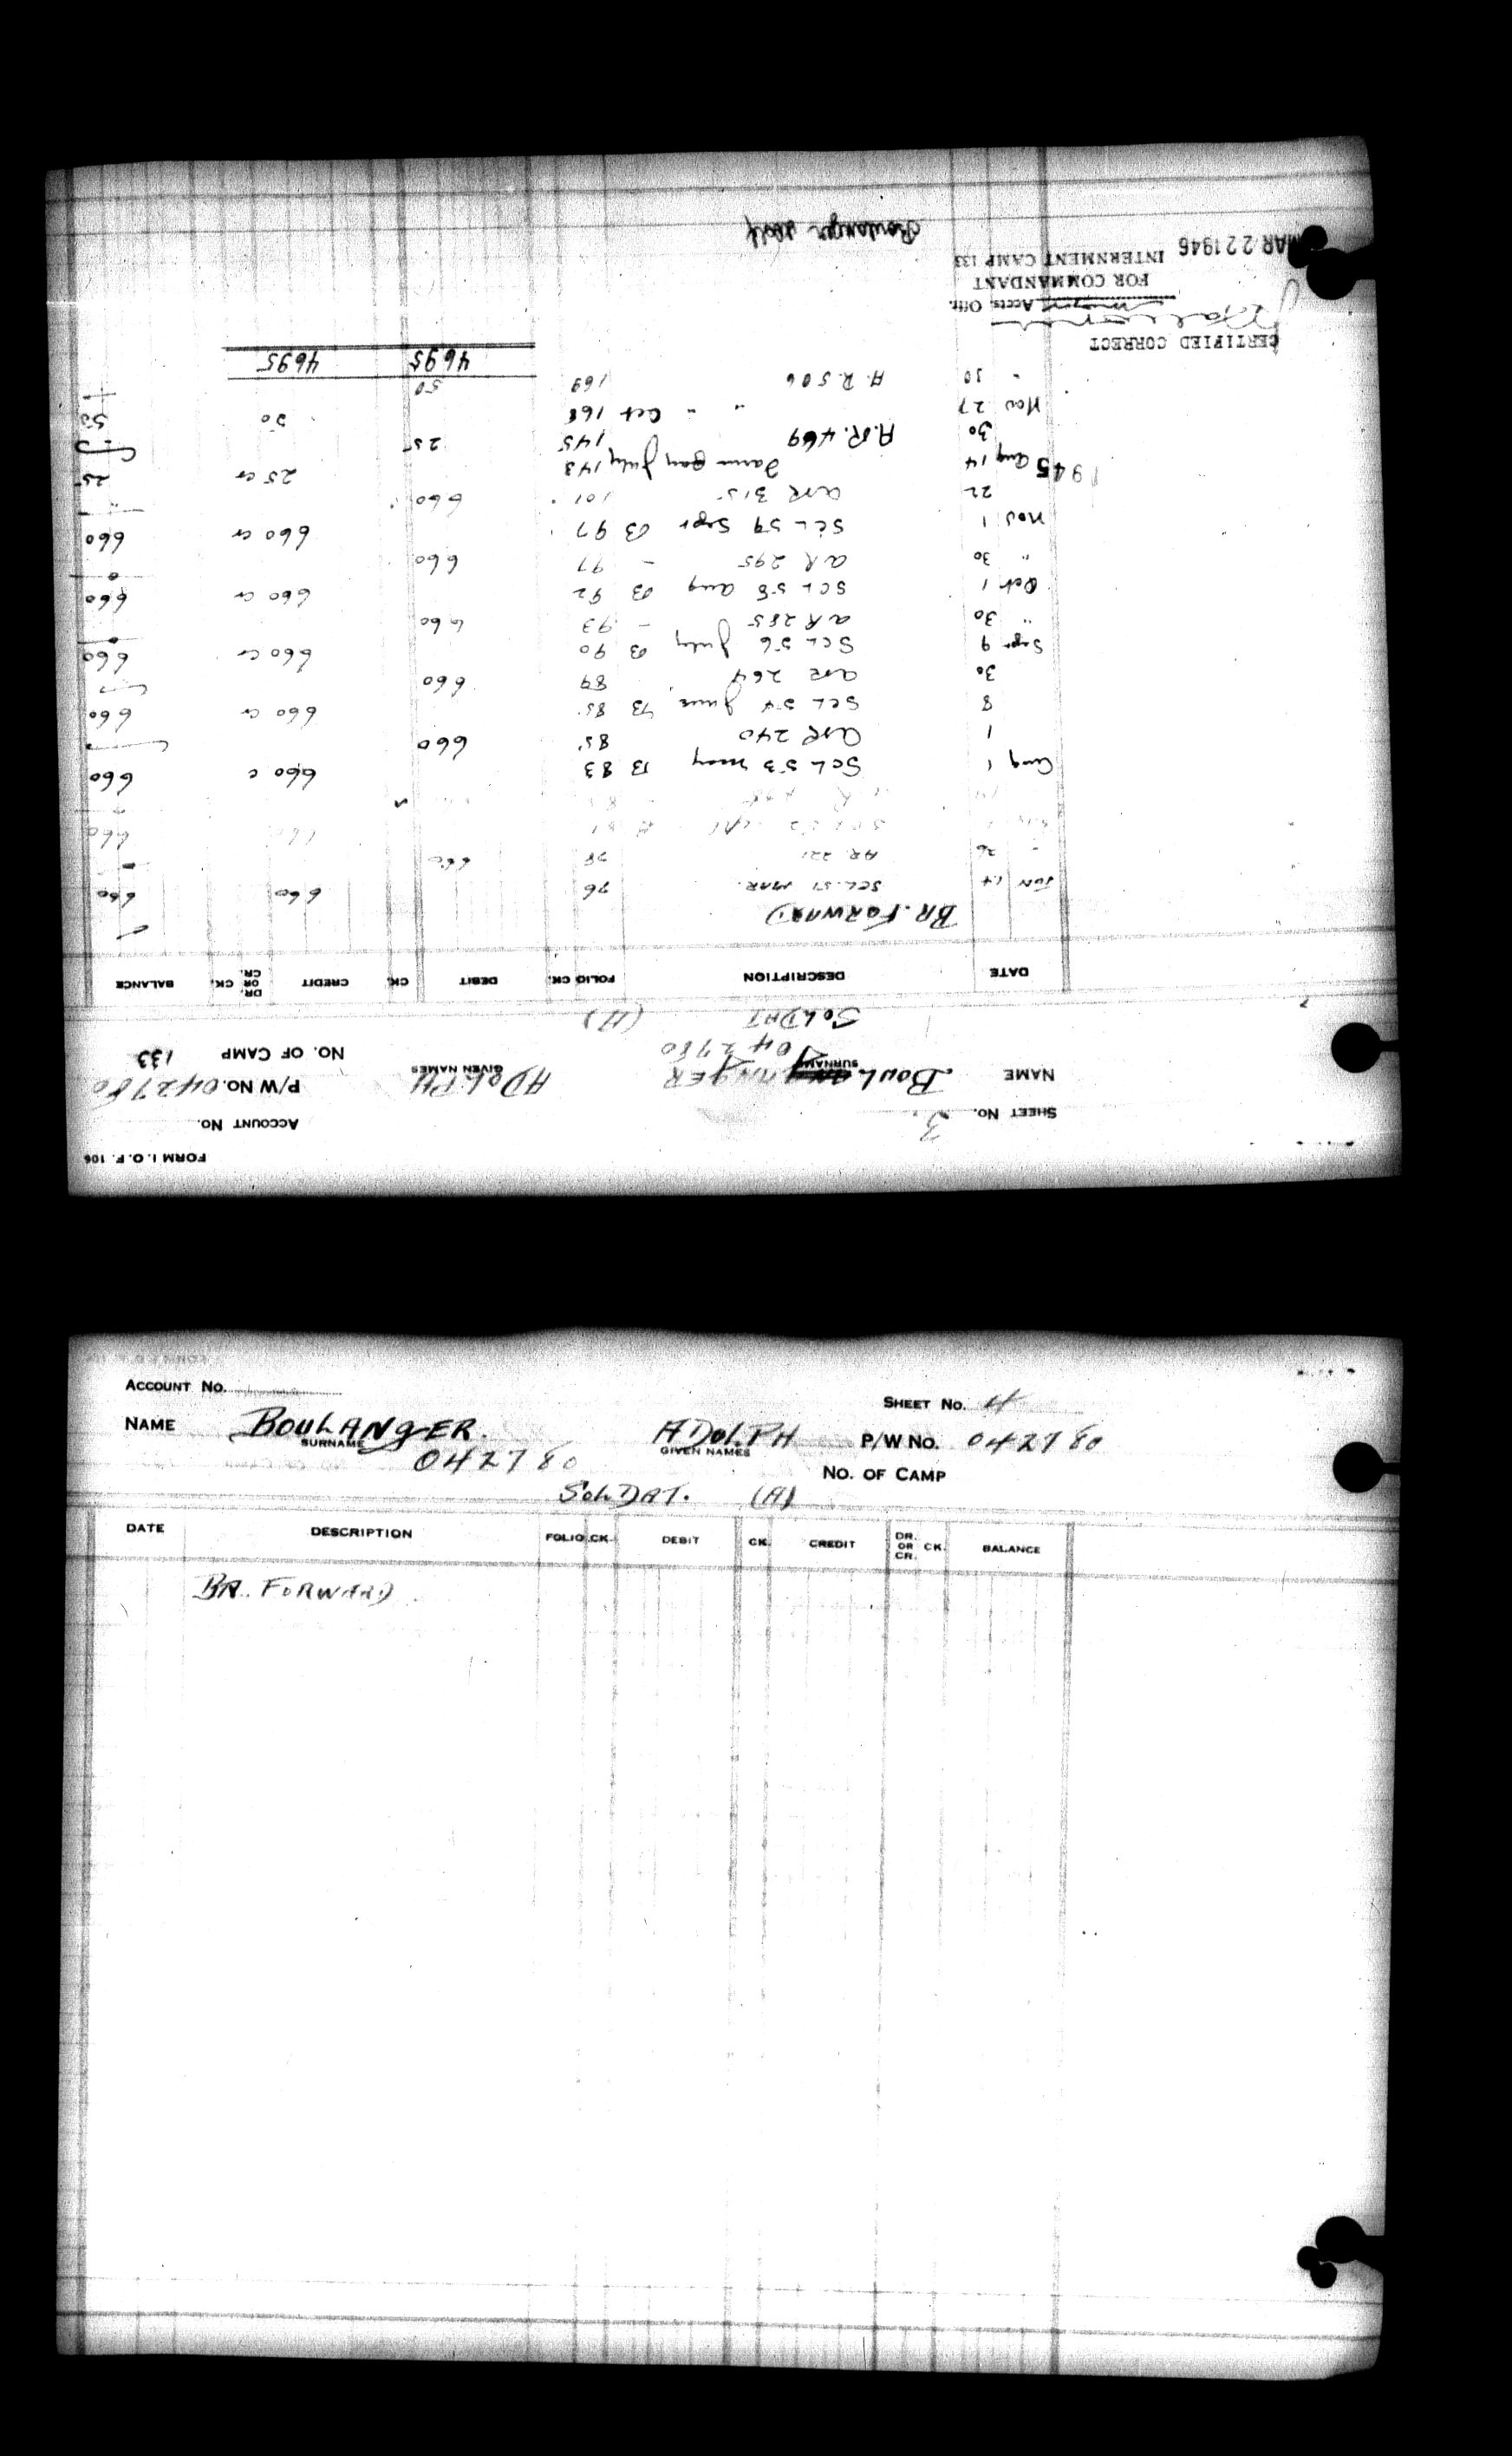 FORM I.O.F. 106
ACCOUNT NO.
SHEET NO. 3.
NAME BOULANGER ADOLPH P/W NO. 042780
SURNAME GIVEN NAMES
042780 NO. OF CAMP 133
SOLDAT (A)
DATE DESCRIPTION FOLIO CK. DEBIT CK. CREDIT DR. OR CR. CK. BALANCE
BR. FORWARD
JUN 14 SCL. 51 MAR. 76 660 660
" 26 AR. 221 78 660 -
660
Aug 1 SCL 53 may B 83 660 c 660
1 AR 240 85 660
8 SCL 54 June B 85 660 cr 660
30 AR 264 89 660
Sept 9 SCL 56 July B 90 660 cr 660
" 30 AR 285 - 93 660
Oct 1 SCL 58 Aug B 92 660 cr 660
" 30 AR 295 - 97 660 0
Nov 1 SCL 59 Sept B 97 660 cr 660
22 AR 315 101 660
1945 Aug 14 July 143 25 cr 25
30 A.R. 469 145 25
Nov 27 " " Oct 168 50 50
" 30 A.R. 506 169 50
4695 4695
CERTIFIED CORRECT
Accts. Offr.
FOR COMMANDANT
INTERNMENT CAMP 133
MAR 22 1946
Boulanger Adolf
ACCOUNT NO.
SHEET NO. 4
NAME BOULANGER. ADOLPH P/W NO. 042780
SURNAME GIVEN NAMES
042780 NO. OF CAMP
SOLDAT. (A)
DATE DESCRIPTION FOLIO CK. DEBIT CK. CREDIT DR. OR CR. CK. BALANCE
BR. FORWARD